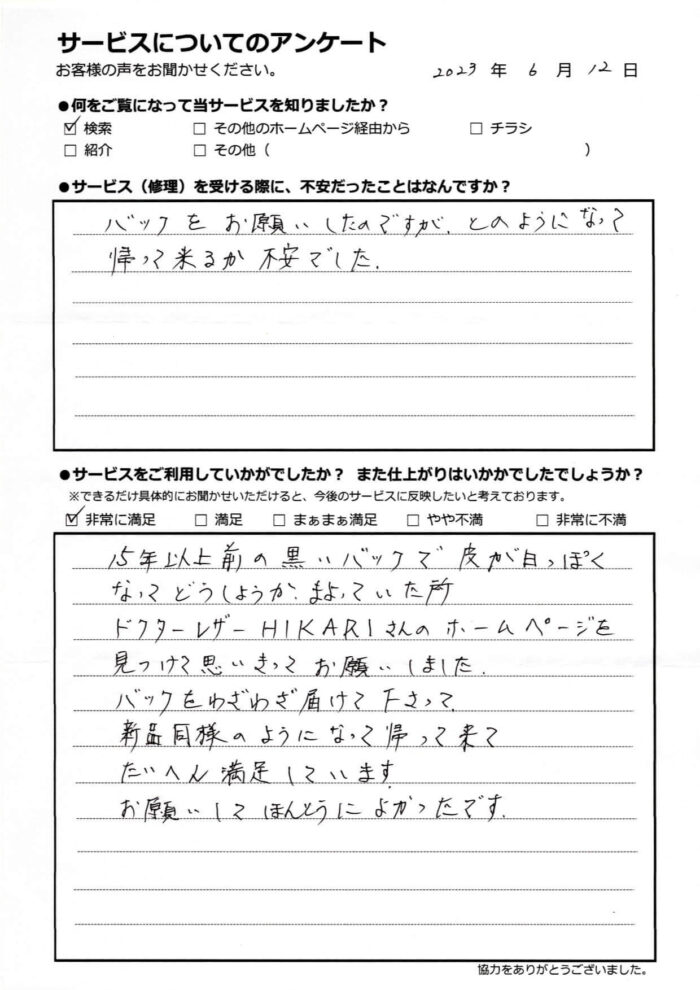 サービスについてのアンケート
お客様の声をお聞かせください。
2023 年 6 月 12 日
●何をご覧になって当サービスを知りましたか？
☑ 検索 □ その他のホームページ経由から □ チラシ
□ 紹介 □ その他（ ）
●サービス（修理）を受ける際に、不安だったことはなんですか？
バックを お願いしたのですが、とのようになって
帰って来るか 不安でした.
●サービスをご利用していかがでしたか？ また仕上がりはいかかでしたでしょうか？
※できるだけ具体的にお聞かせいただけると、今後のサービスに反映したいと考えております。
☑ 非常に満足 □ 満足 □ まぁまぁ満足 □ やや不満 □ 非常に不満
15年以上前の黒いバックで 皮が白っぽく
なってどうしようか、まよっていた所
ドクターレザーHIKARIさんの ホームページを
見つけて思いきって お願いしました.
バックをわざわざ届けて下さって、
新品同様のようになって帰って来て
たいへん満足しています.
お願いして ほんとうによかったです.
協力をありがとうございました。